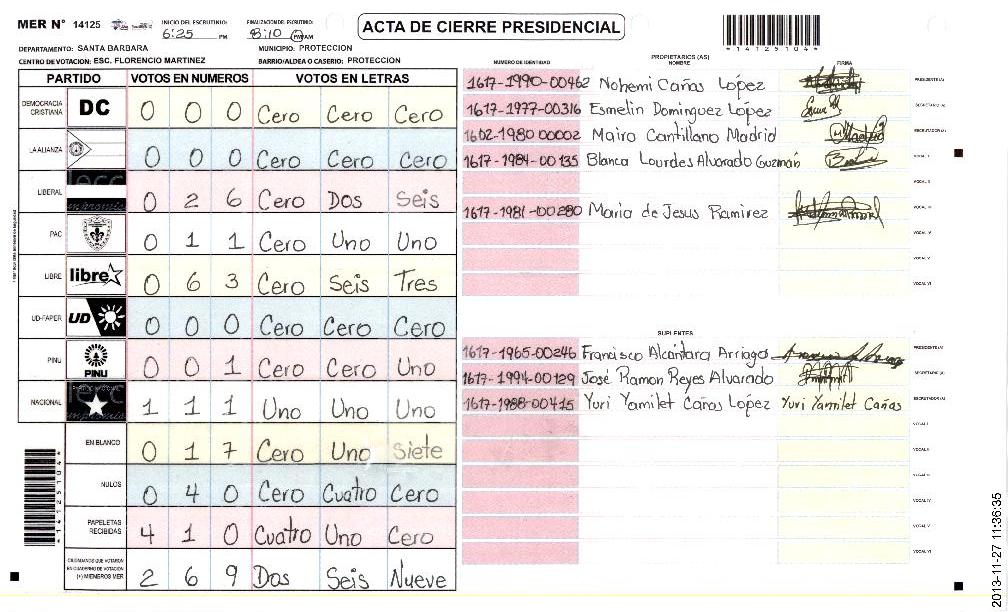 MER Nº 14125 INICIO DEL ESCRUTINIO: 6:25 PM FINALIZACION DEL ESCRUTINIO: 8:10 PM/AM
ACTA DE CIERRE PRESIDENCIAL
*14125104*
DEPARTAMENTO: SANTA BARBARA MUNICIPIO: PROTECCION
CENTRO DE VOTACION: ESC. FLORENCIO MARTINEZ BARRIO/ALDEA O CASERIO: PROTECCION
PARTIDO VOTOS EN NUMEROS VOTOS EN LETRAS
DEMOCRACIA CRISTIANA DC 0 0 0 Cero Cero Cero
LA ALIANZA 0 0 0 Cero Cero Cero
LIBERAL 0 2 6 Cero Dos Seis
PAC 0 1 1 Cero Uno Uno
LIBRE libre 0 6 3 Cero Seis Tres
UD-FAPER UD 0 0 0 Cero Cero Cero
PINU PINU 0 0 1 Cero Cero Uno
NACIONAL 1 1 1 Uno Uno Uno
EN BLANCO 0 1 7 Cero Uno Siete
NULOS 0 4 0 Cero Cuatro Cero
PAPELETAS RECIBIDAS 4 1 0 Cuatro Uno Cero
CIUDADANOS QUE VOTARON EN CUADERNO DE VOTACION (+) MIEMBROS MER 2 6 9 Dos Seis Nueve
*14125104*
PROPIETARIOS (AS)
NUMERO DE IDENTIDAD NOMBRE FIRMA
1617-1990-00462 Nohemi Cañas López PRESIDENTE(A)
1617-1977-00316 Esmelin Dominguez López SECRETARIO (A)
1602-1980 00002 Maira Cantillano Madrid ESCRUTADOR (A)
1617-1984-00135 Blanca Lourdes Alvarado Guzmán VOCAL I
VOCAL II
1617-1981-00280 Maria de Jesus Ramirez VOCAL III
VOCAL IV
VOCAL V
VOCAL VI
SUPLENTES
1617-1965-00246 Francisco Alcántara Arriaga PRESIDENTE(A)
1617-1994-00129 José Ramon Reyes Alvarado SECRETARIO (A)
1617-1988-00415 Yuri Yamilet Cañas López Yuri Yamilet Cañas ESCRUTADOR (A)
VOCAL I
VOCAL II
VOCAL III
VOCAL IV
VOCAL V
VOCAL VI
2013-11-27 11:36:35